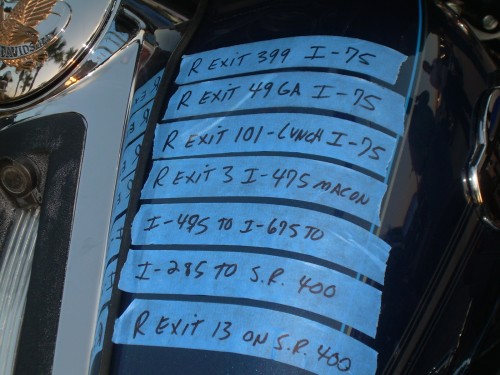 DAVIDSON
R EXIT 399 I-75
R EXIT 49GA I-75
R EXIT 101-LUNCH I-75
R EXIT 3 I-475 MACON
I-475 TO I-675 TO
I-285 TO S.R. 400
R EXIT 13 ON S.R. 400